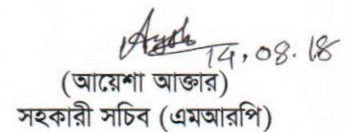 14.08.18
(আয়েশা আক্তার)
সহকারী সচিব (এমআরপি)